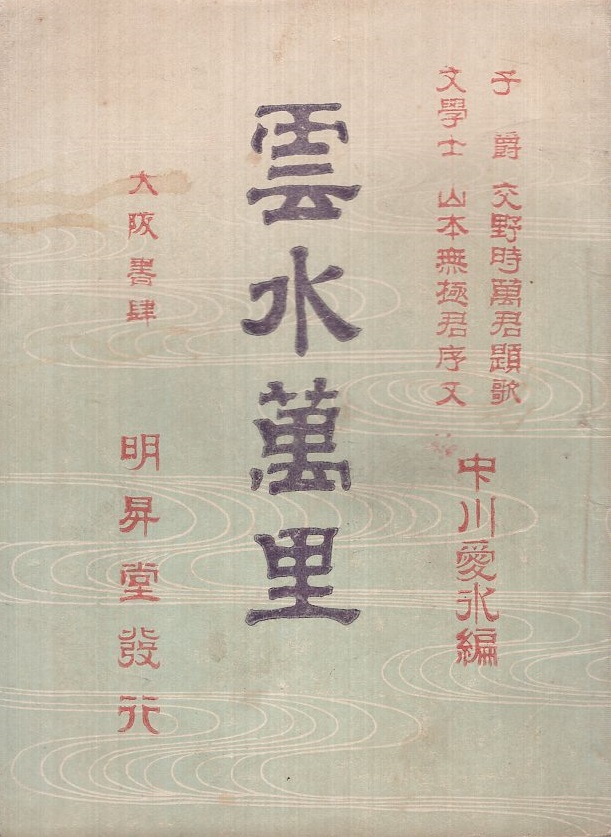 子爵 交野時萬君題歌
文學士 山本無極君序文
中川愛氷編
雲水萬里
大阪書肆
明昇堂發行